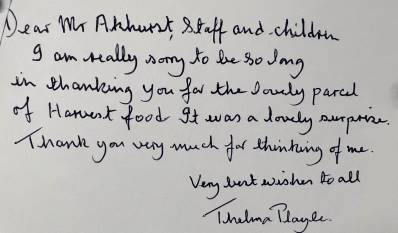 Dear Mr Akhurst, Staff and children
I am really sorry to be so long
in thanking you for the lovely parcel
of Harvest food It was a lovely surprise.
Thank you very much for thinking of me.
Very best wishes to all
Thelma Playle.